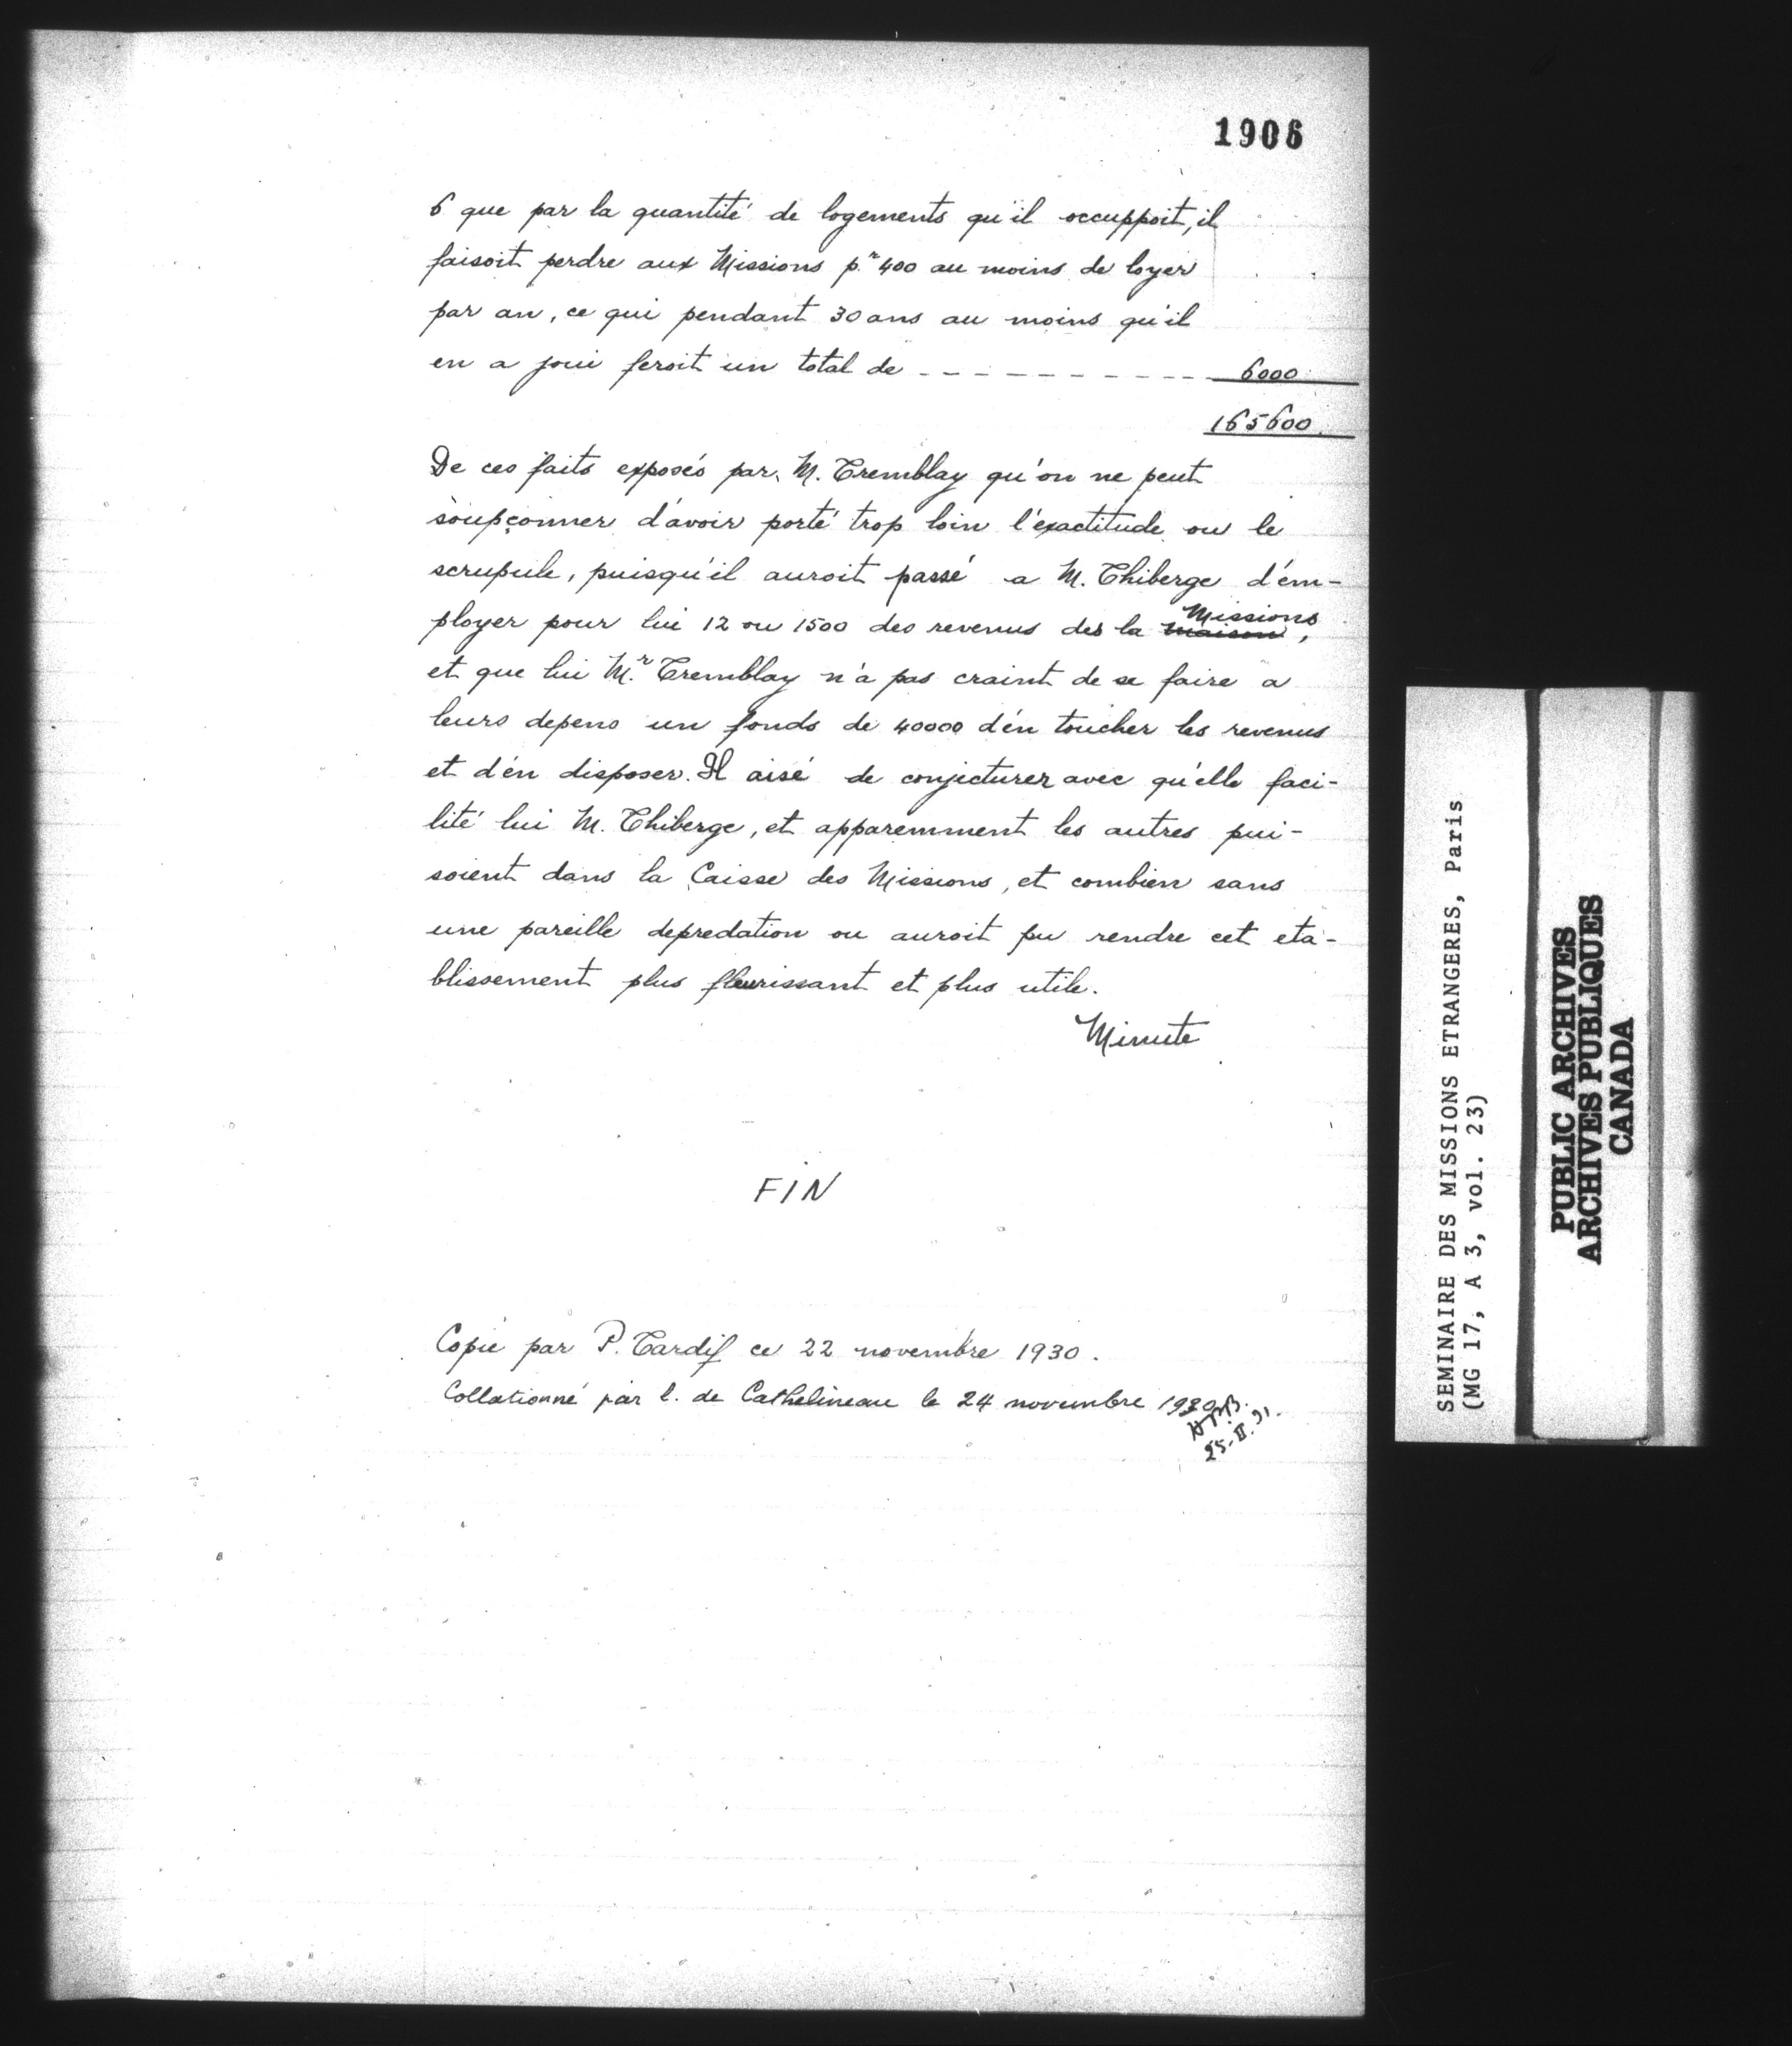 1906
6 que par la quantité de logements qu'il occuppoit, il
faisoit perdre aux Missions p.r 400 au moins de loyer
par an, ce qui pendant 30 ans au moins qu'il
en a joui feroit un total de - - - - - - - - - - - 6000
165600
De ces faits exposés par M. Tremblay qu'on ne peut
soupçonner d'avoir porté trop loin l'exactitude ou le
scrupule, puisqu'il auroit passé a M. Thiberge d'em-
ployer pour lui 12 ou 1500 des revenus des la maison Missions,
et que lui M.r Tremblay n'a pas craint de se faire a
leurs depens un fonds de 40000 d'én toucher les revenus
et d'én disposer. Il aisé de conjecturer avec qu'elle faci-
lité lui M. Thiberge, et apparemment les autres pui-
soient dans la Caisse des Missions, et combien sans
une pareille depredation ou auroit pu rendre cet eta-
blissement plus fleurissant et plus utile.
Minute
FIN
Copié par P. Tardif ce 22 novembre 1930.
Collationné par l. de Cathelineau le 24 novembre 1930
25-II.31.
SEMINAIRE DES MISSIONS ETRANGERES, Paris
(MG 17, A 3, vol. 23)
PUBLIC ARCHIVES
ARCHIVES PUBLIQUES
CANADA